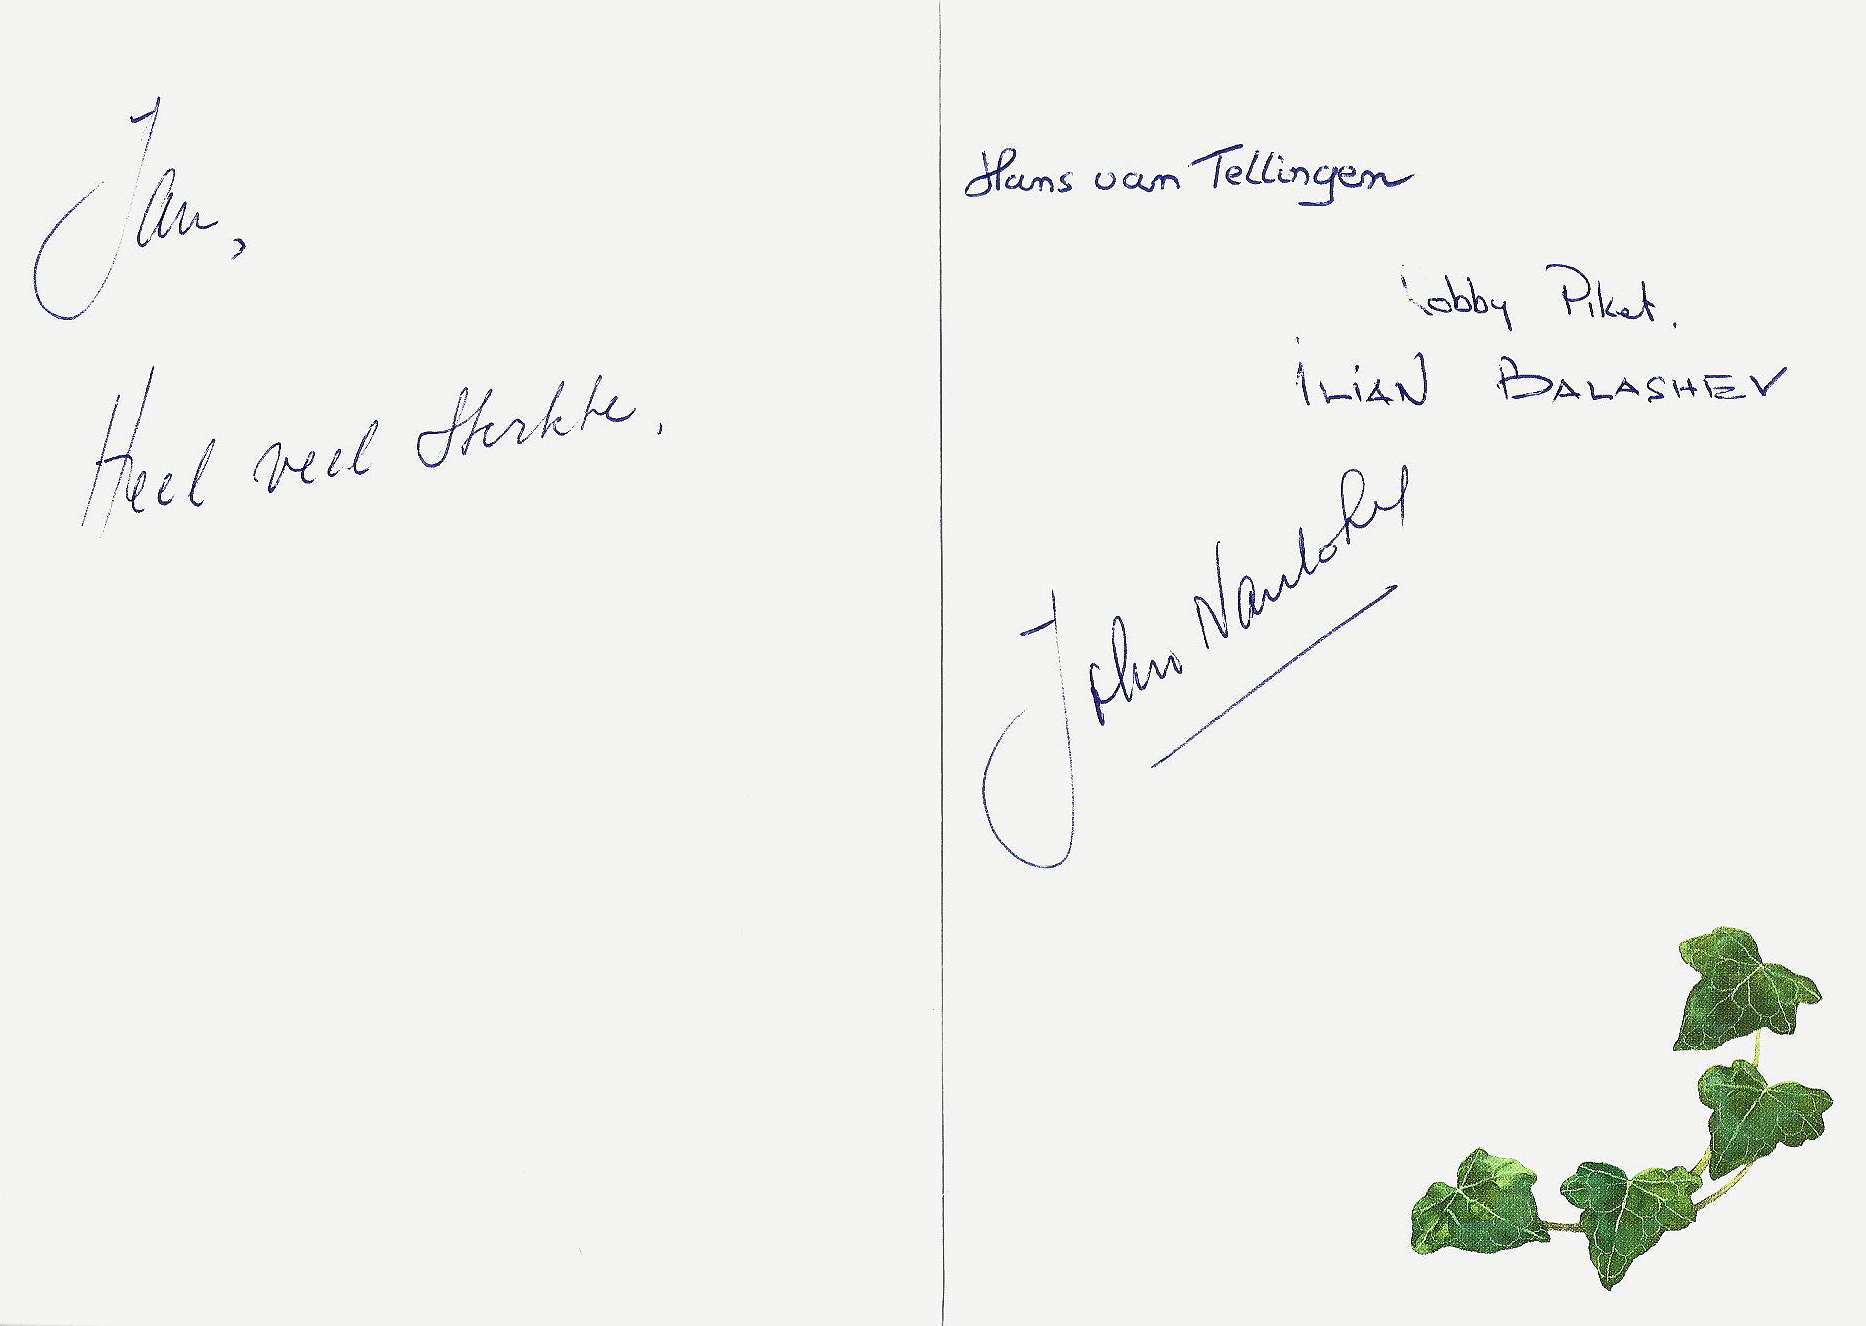 Jan,
Heel veel Sterkte.
Hans van Tellingen
Piket.
ILIAN BALASHEV
John